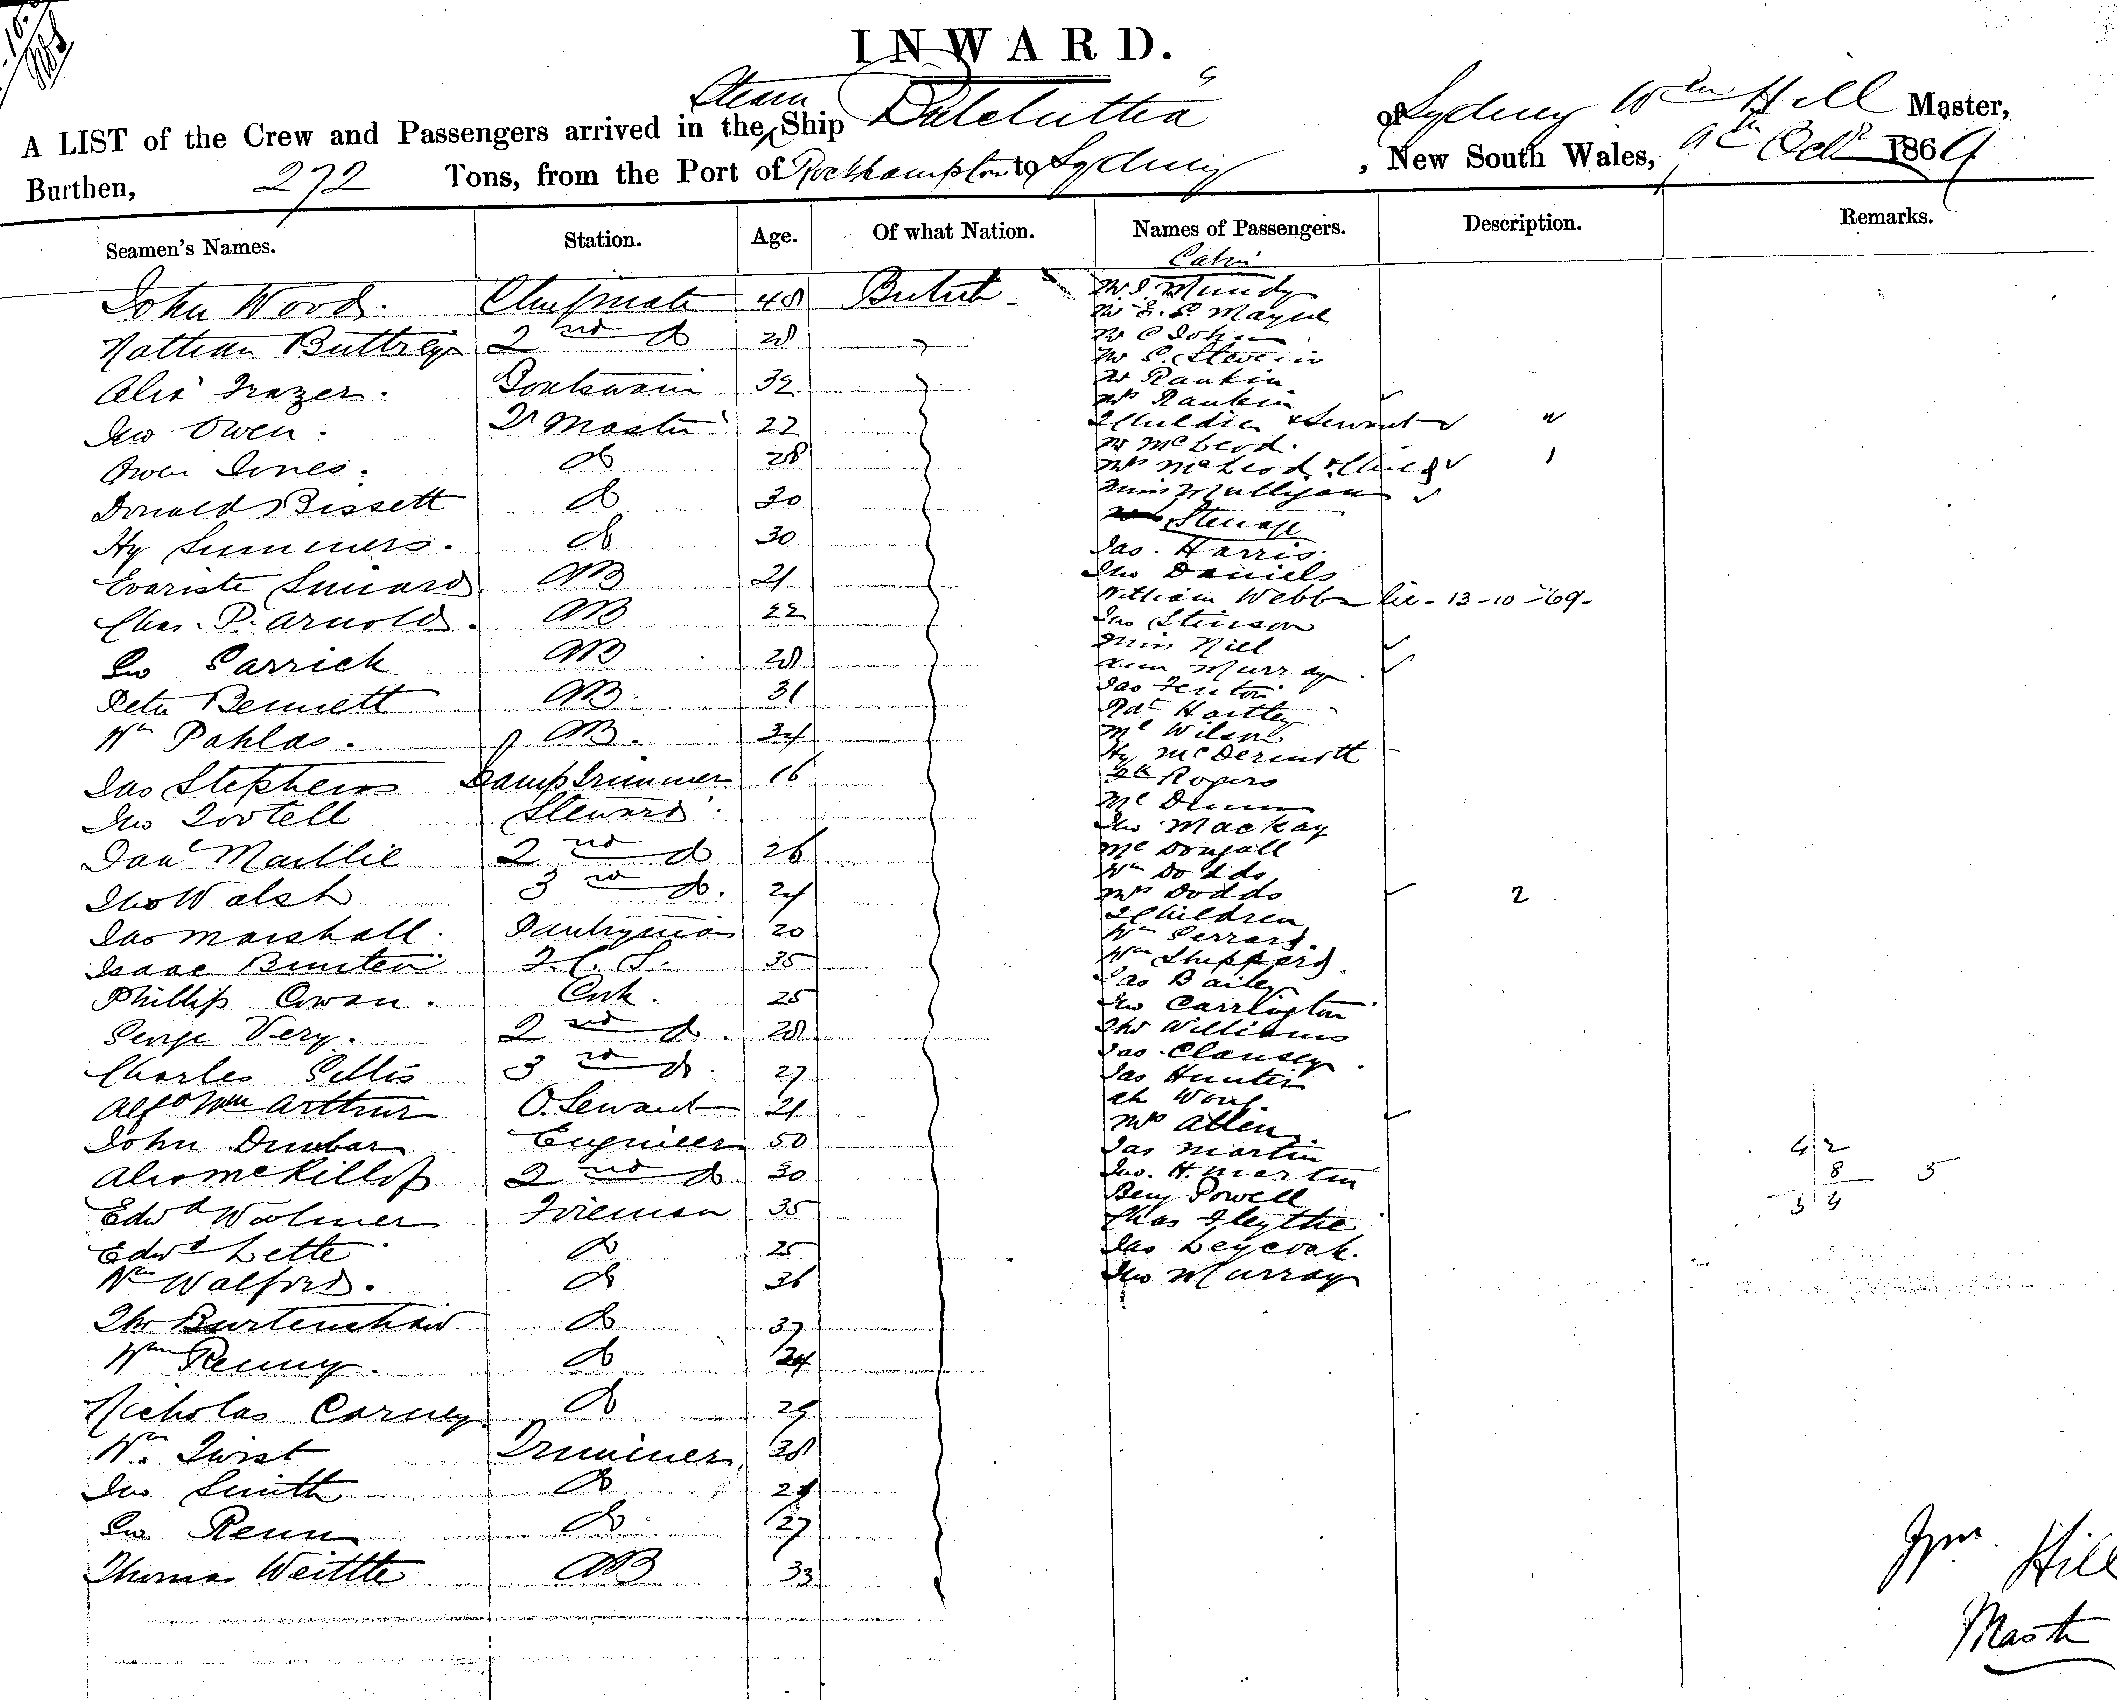 INWARD.
A LIST of the Crew and Passengers arrived in the Steam Ship "Balclutha" of Sydney Wm Hill Master,
Burthen, 272 Tons, from the Port of Rockhampton to Sydney, New South Wales, 9th Octr 1869
Seamen's Names. Station. Age. Of what Nation. Names of Passengers. Description. Remarks.
Cabin
John Wood. Chief mate 48 British
Nathan Buttrey 2nd do 28
Alexr Frazer. Boatswain 32
Jno Owen. Qr Master 22
Owen Jones. do 28
Donald Bissett do 30
Hy Summers. do 30
Evariste AB 21
Chas. P. Arnold. AB 22
Geo Garrick AB 28
Peter Bennett AB. 31
Wm Pahlas. AB. 24
Jas Stephens Lamp Trimmer 16
Jno Tootell Steward
Danl Maillie 2nd do 26
Thos Walsh 3rd do. 24
Jas Marshall. Pantryman 20
Isaac Bunten F.C.S. 35
Phillip Cowan. Cook. 25
George Very. 2nd do. 28
Charles Gillis 3rd do. 27
Alfd Wm Arthur O. Servant 21
John Dunbar Engineer 50
Alexr McKillop 2nd do 30
Edwd Woolmer Fireman 35
Edwd Lette do 25
Wm Walford. do 36
Thos Burtenshaw do 37
Wm Penny. do 24
Nicholas Carney do 29
Wm Twist Trimmer 38
Jno Smith do 24
Geo Renn do 27
Thomas Weittle AB 33
Mr J. Mundy
Mr E. P. Mayne
Mr C John
Mr S. Stevens
Mr Rankin
Mrs Rankin
2 Children & Servant "
Mr McLeod.
Mrs McLeod & Child 1
Miss Mulligan
Steerage
Jas. Harris.
Jno Daniels
William Webb lic - 13-10-69-
Jas Stinson
Miss Niel
Ann Murray.
Jas Fenton
Rdt Hartley
Ml Wilson.
Hy McDermott
Rogers
Ml Dunn
Jno Mackay
McDougall
Wm Dodds
Mrs Dodds 2
2 Children
Wm Gerrard.
Wm Sheppard.
Jas Bailey
Jno Carrington
Thos Williams
Jas. Clansey.
Jas Hunter
Ah Wong.
Mrs Allen.
Jas Martin
Jno. H. Martin
Benj Powell
Chas Blythe
Jas Leycock.
Jno Murray
42
8 5
34
Wm Hill
Master